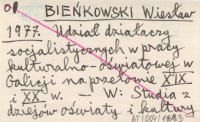 01 BIEŃKOWSKI Wiesław
1977. Udział działaczy
socjalistycznych w pracy
kulturalno-oświatowej w
Galicji na przełomie XIX
i XX w. – W: Studia z
dziejów oświaty i kultury